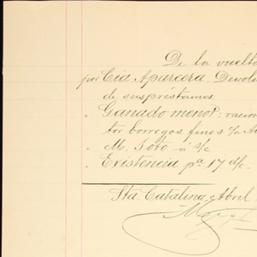 De la vuelta
por Cia Aparcera. Devolu
de sus préstamos.
Ganado menor: racion
tor borregos finos s/n A
M. Soto á s/c
Existencia pa. 17 d/c.
Sta Catalina, Abril